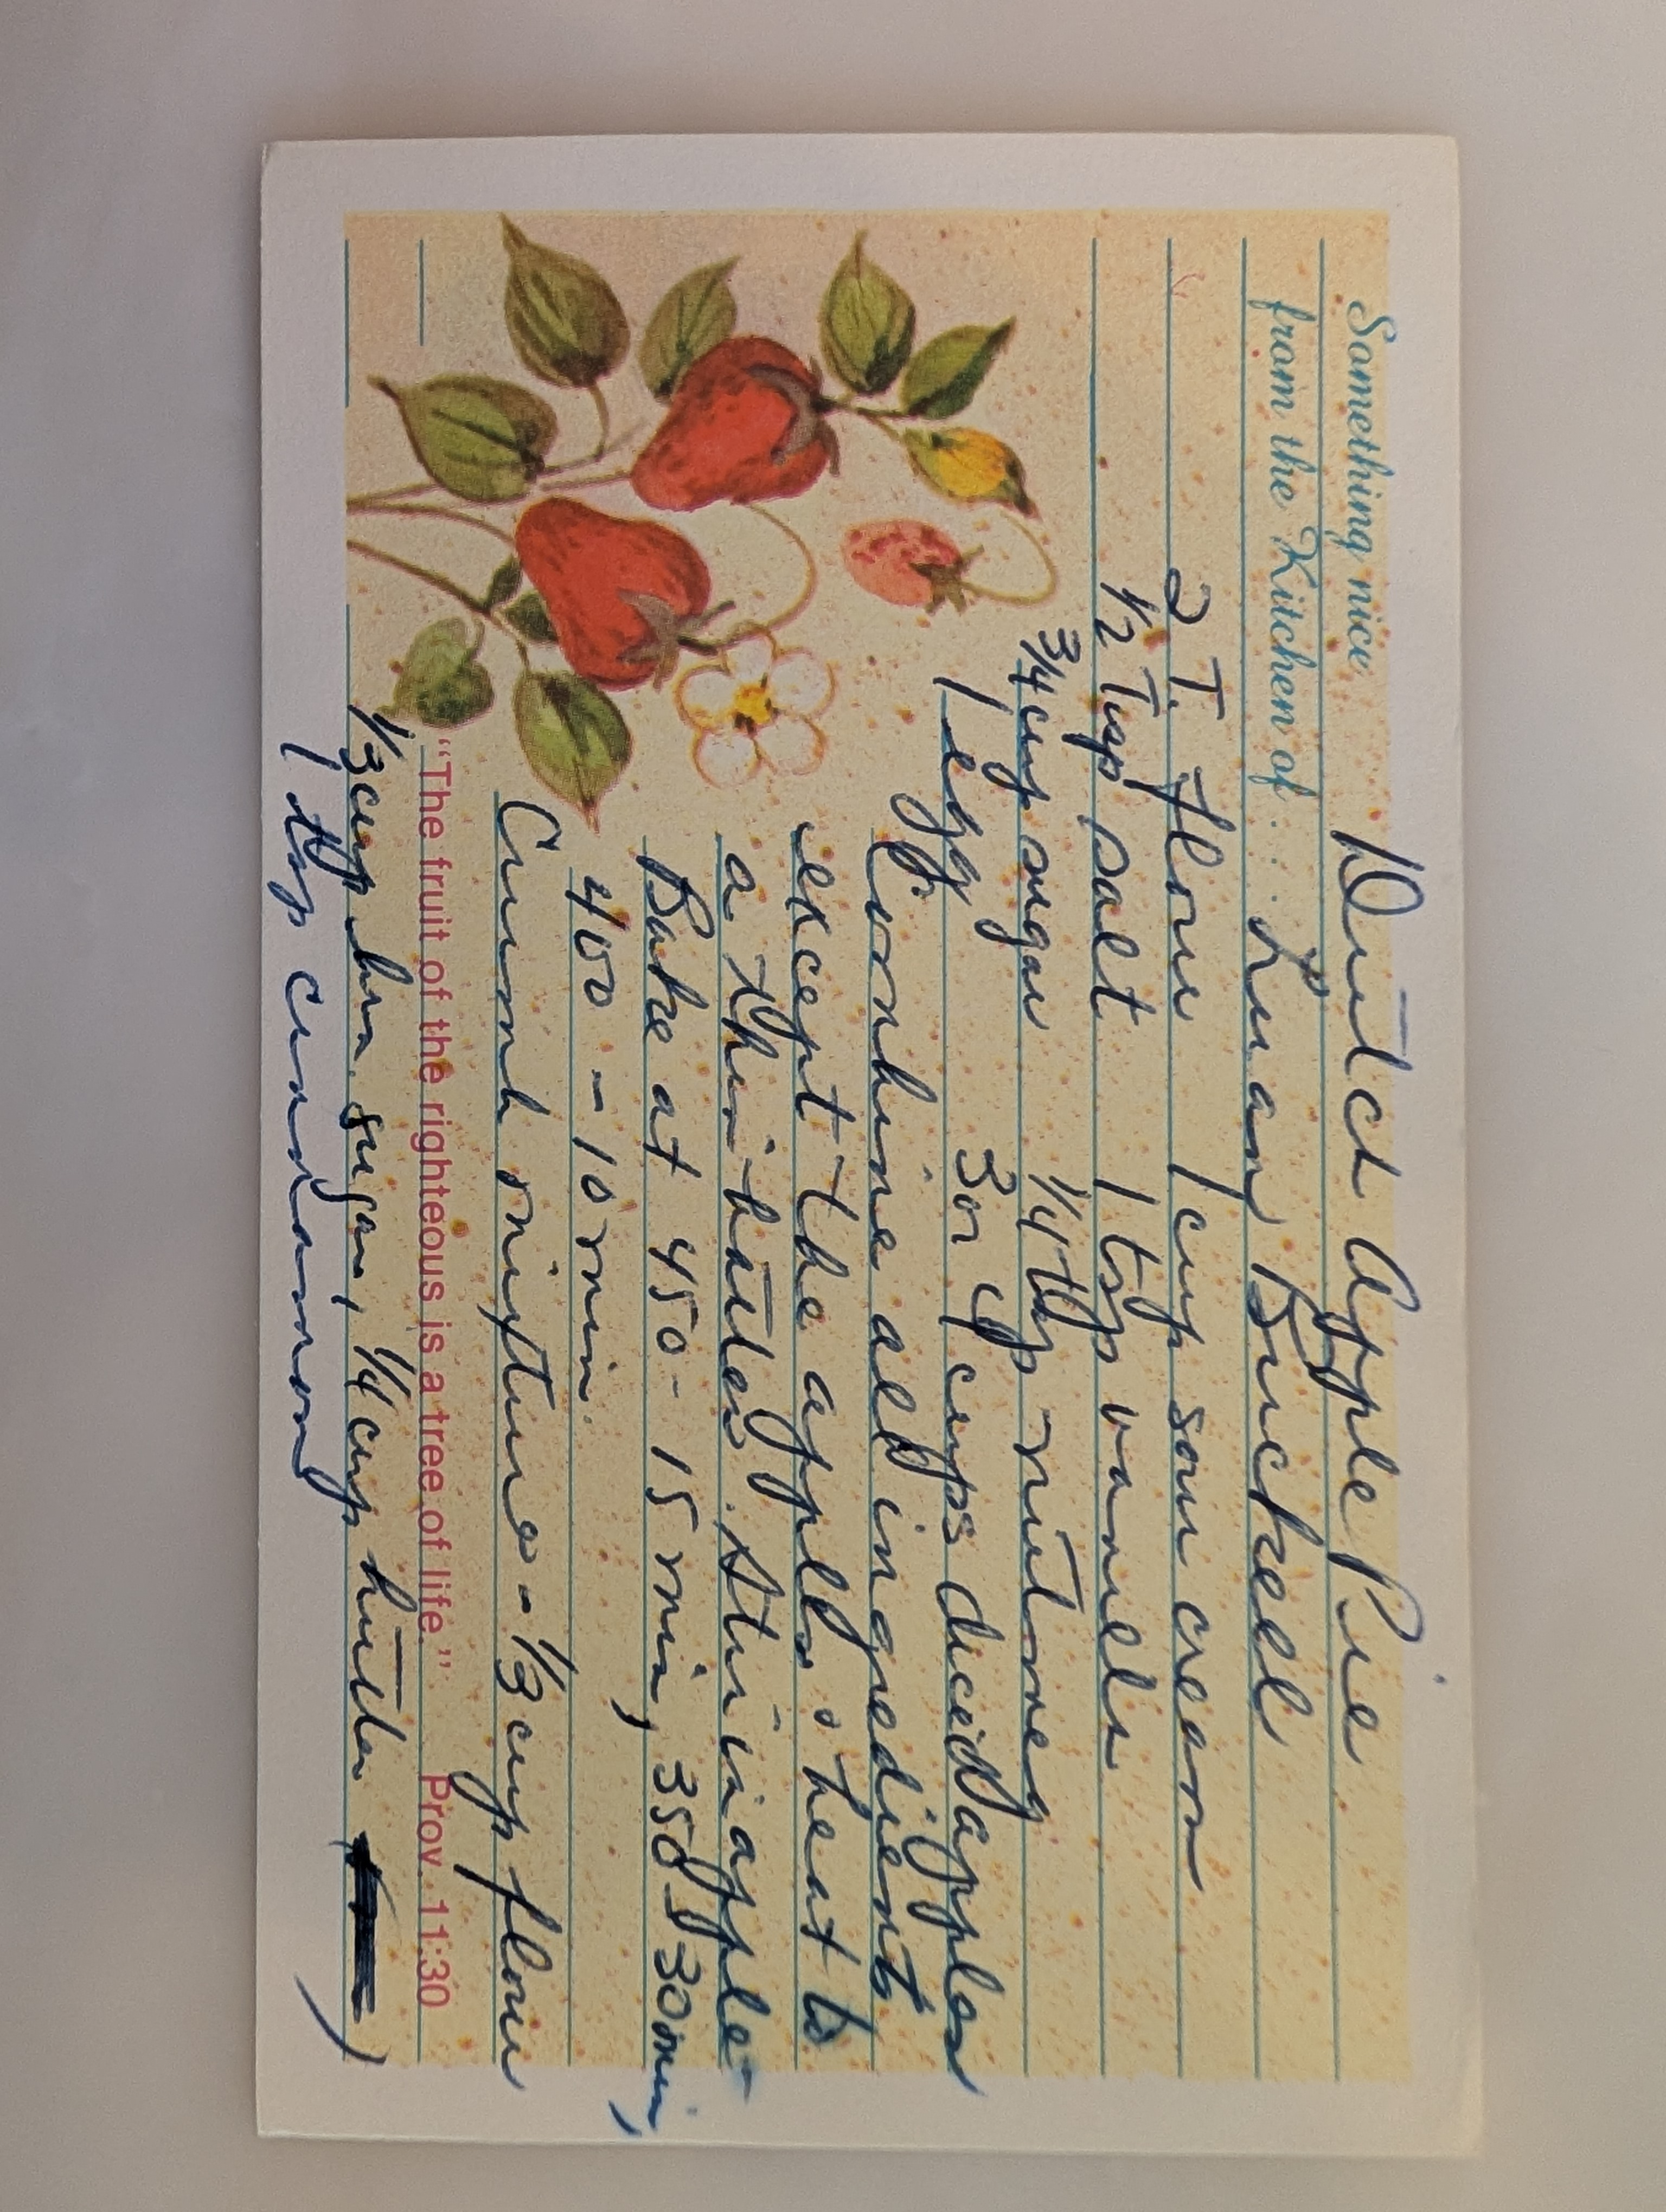 Something nice Dutch Apple Pie
from the Kitchen of : Luan Brickell
2 T. flour 1 cup sour cream
1/2 Tsp salt 1 tsp vanella
3/4 cup sugar 1/4 tsp nutmeg
1 egg 3 or 4 cups diced apples
Combine all ingredients
except the apples. Heat to
a thin batter. Stir in apple-
Bake at 450 - 15 min, 350 - 30 min,
400 - 10 min.
Crumb mixture - 1/3 cup flour
"The fruit of the righteous is a tree of life." Prov. 11:30
1/3 cup brn. sugar, 1/4 cup butter
1 tsp cinnamon